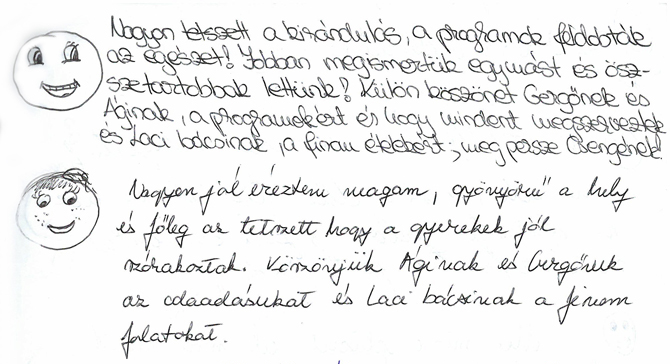 Nagyon tetszett a kirándulás, a programok földobták
az egészet! Jobban megismertük egymást és ösz-
szetartobbak lettünk! Külön köszönet Gergőnek és
Áginak, a programokért és hogy mindent megszerveztek
és Laci bácsinak, a finom ételekért, meg persze Csengének!
Nagyon jól éreztem magam, gyönyörű a hely
és főleg az tetszett hogy a gyerekek jól
szórakoztak. Köszönjük Áginak és Gergőnek
az odaadásukat és Laci bácsinak a finom
falatokat.